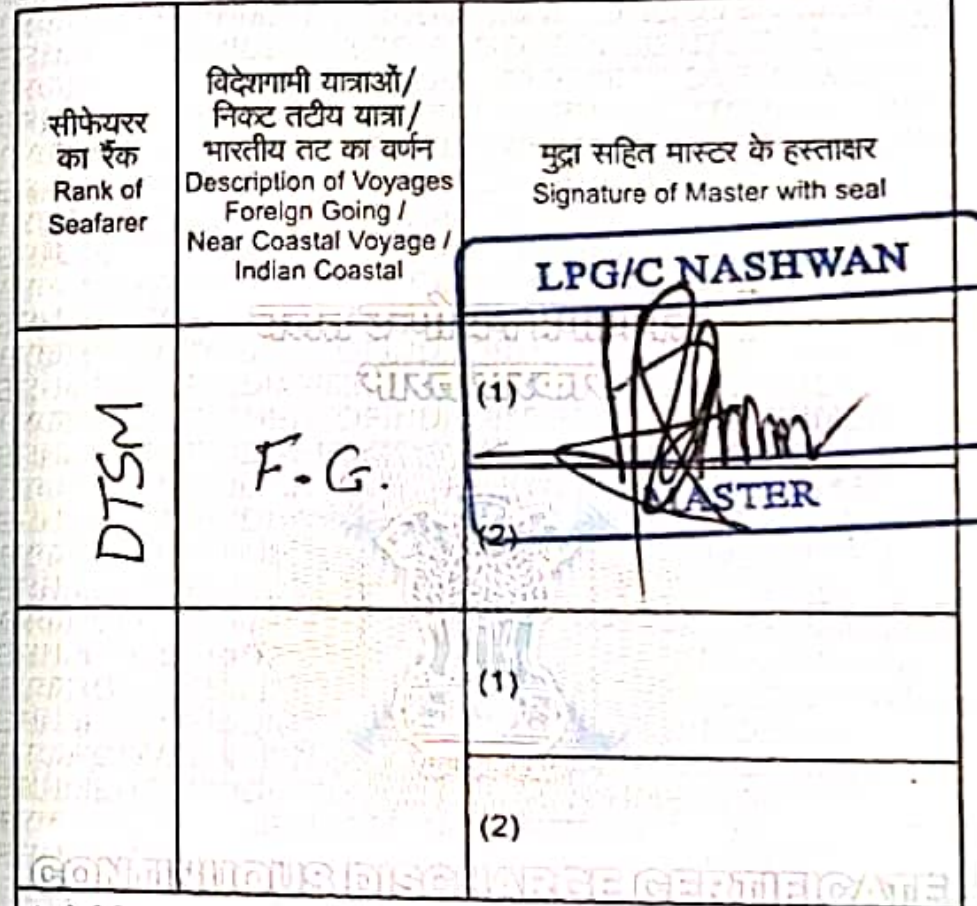 सीफेयरर
का रैंक
Rank of
Seafarer
विदेशगामी यात्राओं/
निकट तटीय यात्रा/
भारतीय तट का वर्णन
Description of Voyages
Foreign Going /
Near Coastal Voyage /
Indian Coastal
मुद्रा सहित मास्टर के हस्ताक्षर
Signature of Master with seal
LPG/C NASHWAN
DTSM
F.G.
(1)
MASTER
(2)
(1)
(2)
CONTINUOUS DISCHARGE CERTIFICATE